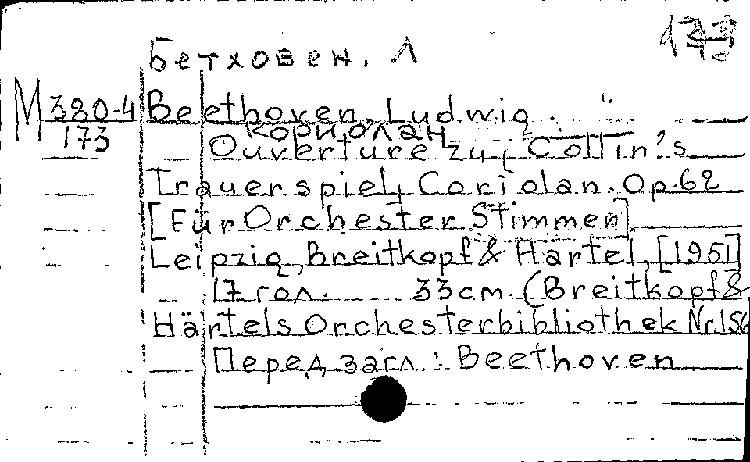 Бетховен, Л
M 380-4 Beethoven, Ludwig
173 Кориолан
Ouverture zu Collin's
Trauerspiel, Coriolan. Op. 62
[Für Orchester. Stimmen]
Leipzig, Breitkopf & Härtel, [1951]
17 гол. 33cm. (Breitkopf &
Härtels Orchesterbibliothek Nr.
Перед загл.: Beethoven